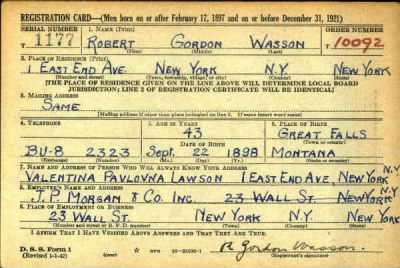 REGISTRATION CARD—(Men born on or after February 17, 1897 and on or before December 31, 1921)
SERIAL NUMBER 1. NAME (Print) ORDER NUMBER
T 1177 ROBERT GORDON WASSON 10092
(First) (Middle) (Last)
2. PLACE OF RESIDENCE (Print)
1 EAST END AVE. NEW YORK N.Y. NEW YORK
(Number and street) (Town, township, village, or city) (County) (State)
[THE PLACE OF RESIDENCE GIVEN ON THE LINE ABOVE WILL DETERMINE LOCAL BOARD
JURISDICTION; LINE 2 OF REGISTRATION CERTIFICATE WILL BE IDENTICAL]
3. MAILING ADDRESS
SAME
[Mailing address if other than place indicated on line 2. If same insert word same]
4. TELEPHONE 5. AGE IN YEARS 6. PLACE OF BIRTH
43 GREAT FALLS
DATE OF BIRTH (Town or county)
BU-8 2323 SEPT. 22 1898 MONTANA
(Exchange) (Number) (Mo.) (Day) (Yr.) (State or country)
7. NAME AND ADDRESS OF PERSON WHO WILL ALWAYS KNOW YOUR ADDRESS
N.Y.
VALENTINA PAVLOVNA LAWSON 1 EAST END AVE, NEW YORK
8. EMPLOYER'S NAME AND ADDRESS
N.Y.
J. P. MORGAN & CO. INC. 23 WALL ST. NEW YORK
9. PLACE OF EMPLOYMENT OR BUSINESS
23 WALL ST. NEW YORK N.Y. NEW YORK
(Number and street or R. F. D. number) (Town) (County) (State)
I AFFIRM THAT I HAVE VERIFIED ABOVE ANSWERS AND THAT THEY ARE TRUE.
D. S. S. Form 1
(Revised 1-1-42) (over) R. Gordon Wasson.
(Registrant's signature)